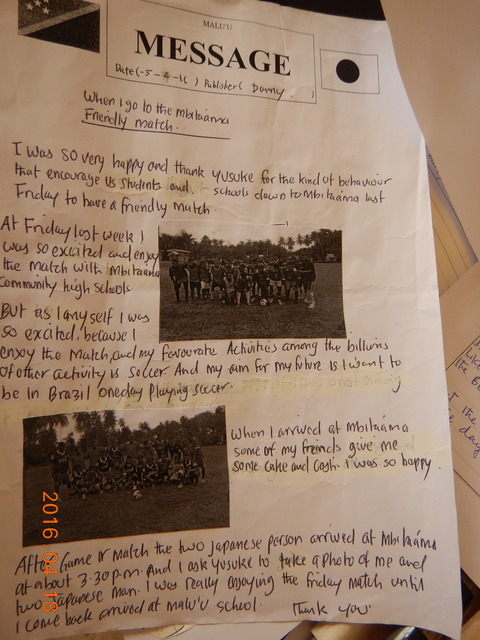 MALU'U
MESSAGE
Date(-5-4-16) Publisher( Danny. )
When I go to the Mbitaáma
Friendly match.
I was so very happy and thank yusuke for the kind of behaviour
that encourage us students and schools down to Mbitaáma last
Friday to have a friendly match.
At Friday last week I
was so excited and enjoy
the match with Mbitaáma
community high schools.
But as I myself I was
so excited, because I
enjoy the Match, and my favourate Activities among the billions
of other activity is soccer. And my aim for my future is I want to
be in Brazil oneday playing soccer.
When I arrived at Mbitaáma
some of my freinds give me
some cake and cash. I was so happy.
After Game or match the two Japanese person arrived at Mbitaáma
at about 3:30p.m. And I ask yusuke to take a photo of me and
two Japanese man. I was really enjoying the friday match until
I come back arrived at malu'u school. Thank you.
2016 04 18